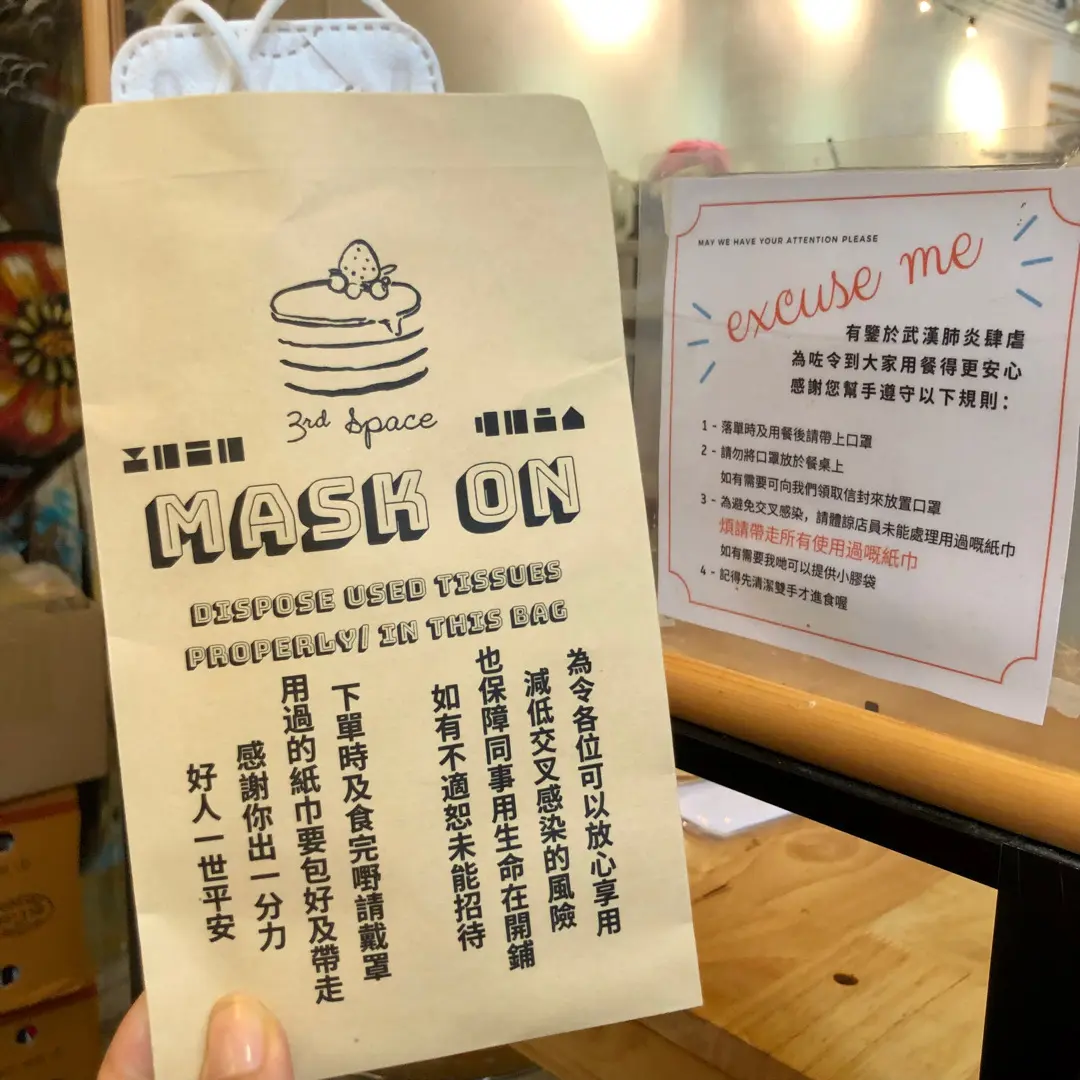 3rd Space
MASK ON
DISPOSE USED TISSUES
PROPERLY/ IN THIS BAG
為令各位可以放心享用
減低交叉感染的風險
也保障同事用生命在開鋪
如有不適恕未能招待
下單時及食完嘢請戴罩
用過的紙巾要包好及帶走
感謝你出一分力
好人一世平安
MAY WE HAVE YOUR ATTENTION PLEASE
excuse me
有鑒於武漢肺炎肆虐
為咗令到大家用餐得更安心
感謝您幫手遵守以下規則：
1 - 落單時及用餐後請帶上口罩
2 - 請勿將口罩放於餐桌上
如有需要可向我們領取信封來放置口罩
3 - 為避免交叉感染，請體諒店員未能處理用過嘅紙巾
煩請帶走所有使用過嘅紙巾
如有需要我哋可以提供小膠袋
4 - 記得先清潔雙手才進食喔